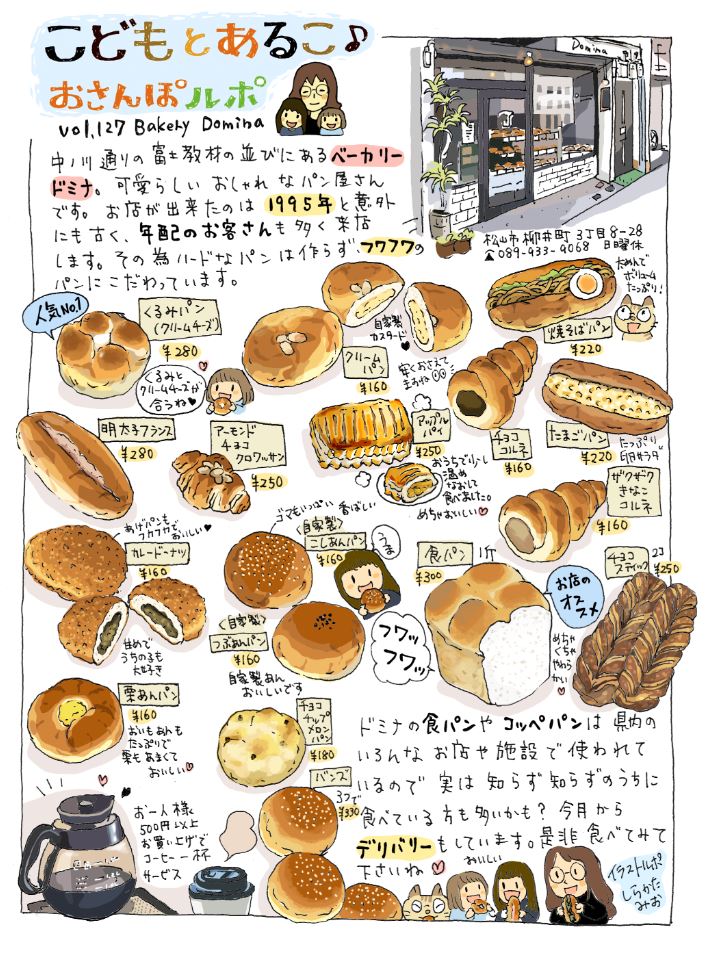 こどもとあるこ♪
おさんぽルポ
vol,127 Bakery Domina
Domina
中ノ川通りの富士教材の並びにあるベーカリー
ドミナ。可愛らしいおしゃれなパン屋さん
です。お店が出来たのは1995年と意外
にも古く、年配のお客さんも多く来店
します。その為ハードなパンは作らず、フワフワの
パンにこだわっています。
松山市柳井町3丁目8-28
☎089-933-9068 日曜休
人気No.1
くるみパン
(クリームチーズ)
¥280
くるみと
クリームチーズが
合うね♥
自家製
カスタード
クリーム
パン
¥160
太めんで
ボリューム
たっぷり!
焼そばパン
¥220
明太子フランス
¥280
アーモンド
チョコ
クロワッサン
¥250
アップル
パイ
¥250
おうちで少し
温め
なおして
食べあした。
めちゃおいしい♡
穴をおさえて
ますね
チョコ
コルネ
¥160
たまごパン
¥220
たっぷり
卵サラダ
ザクザク
きなこ
コルネ
¥160
あげパンも
フカフカで
おいしい♥
カレードーナツ
¥160
甘めで
うちの子も
大好き
ゴマもいっぱい 香ばしい
<自家製>
こしあんパン
¥160
うま
<自家製>
つぶあんパン
¥160
自家製あん
おいしいです
食パン 1斤
¥300
フワッ
フワッ
お店の
オス
スメ
めちゃ
くちゃ
やわら
かい♡
チョコ
スティック
2コ
¥250
栗あんパン
¥160
おいもあんも
たっぷりで
栗もあまくて
おいしい♡
チョコ
チップ
メロン
パン
¥180
バンズ
3つで
¥330
ドミナの食パンやコッペパンは県内の
いろんなお店や施設で使われて
いるので実は知らず知らずのうちに
食べている方も多いかも?今月から
デリバリーもしています。是非食べてみて
下さいね♡
おいしい
お一人様
500円以上
お買い上げで
コーヒー一杯
サービス
イラストルポ
しらかた
みお